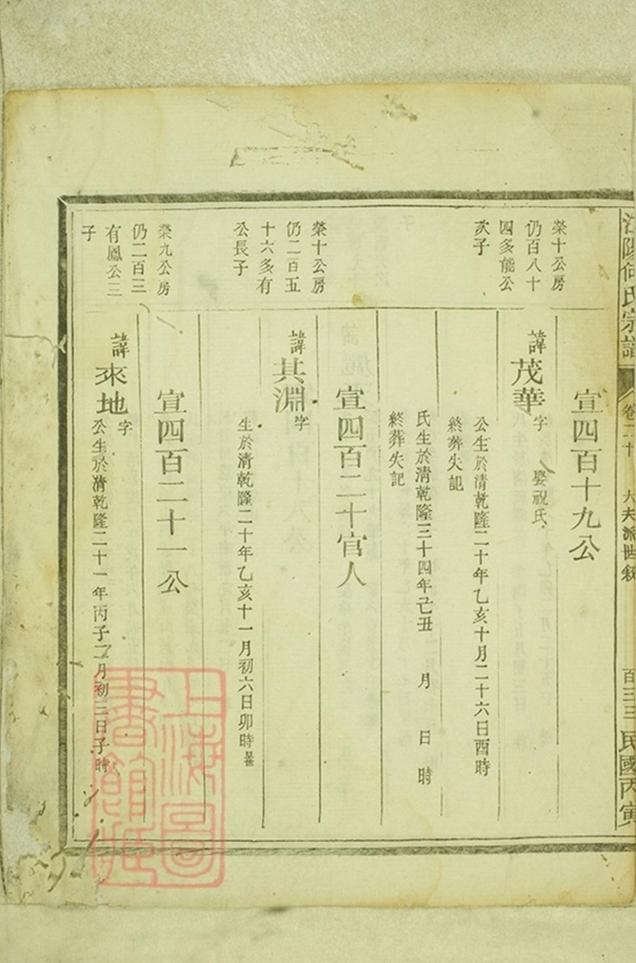 江陽何氏宗譜
卷二十
大夫派世叙
百三三
民國丙寅
榮十公房
仍百八十
四多能公
次子
宣四百十九公
諱茂華字
娶祝氏
公生於清乾隆二十年乙亥十月二十六日酉時
終葬失記
氏生於清乾隆三十四年己丑 月 日 時
終葬失記
榮十公房
仍二百五
十六多有
公長子
宣四百二十官人
諱其淵字
生於清乾隆二十年乙亥十一月初六日卯時
榮九公房
仍二百三
有鳳公三
子
宣四百二十一公
諱來地字
公生於清乾隆二十一年丙子二月初三日子時
上海圖
書館藏